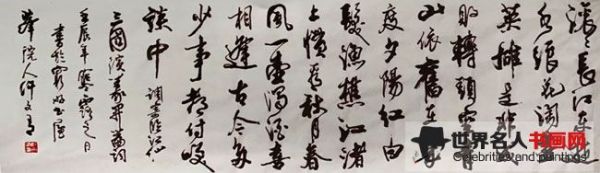 滚滚长江东逝
水浪花淘尽
英雄是非成
败转头空青
山依舊在几
度夕阳红白
髮渔樵江渚
上惯看秋月春
风一壶浊酒喜
相逢古今多
少事都付笑
谈中 调寄临江仙
三國演義開篇词
壬辰年寒露之日
书於
院人
世界名人书画网
Celebrities and paintings